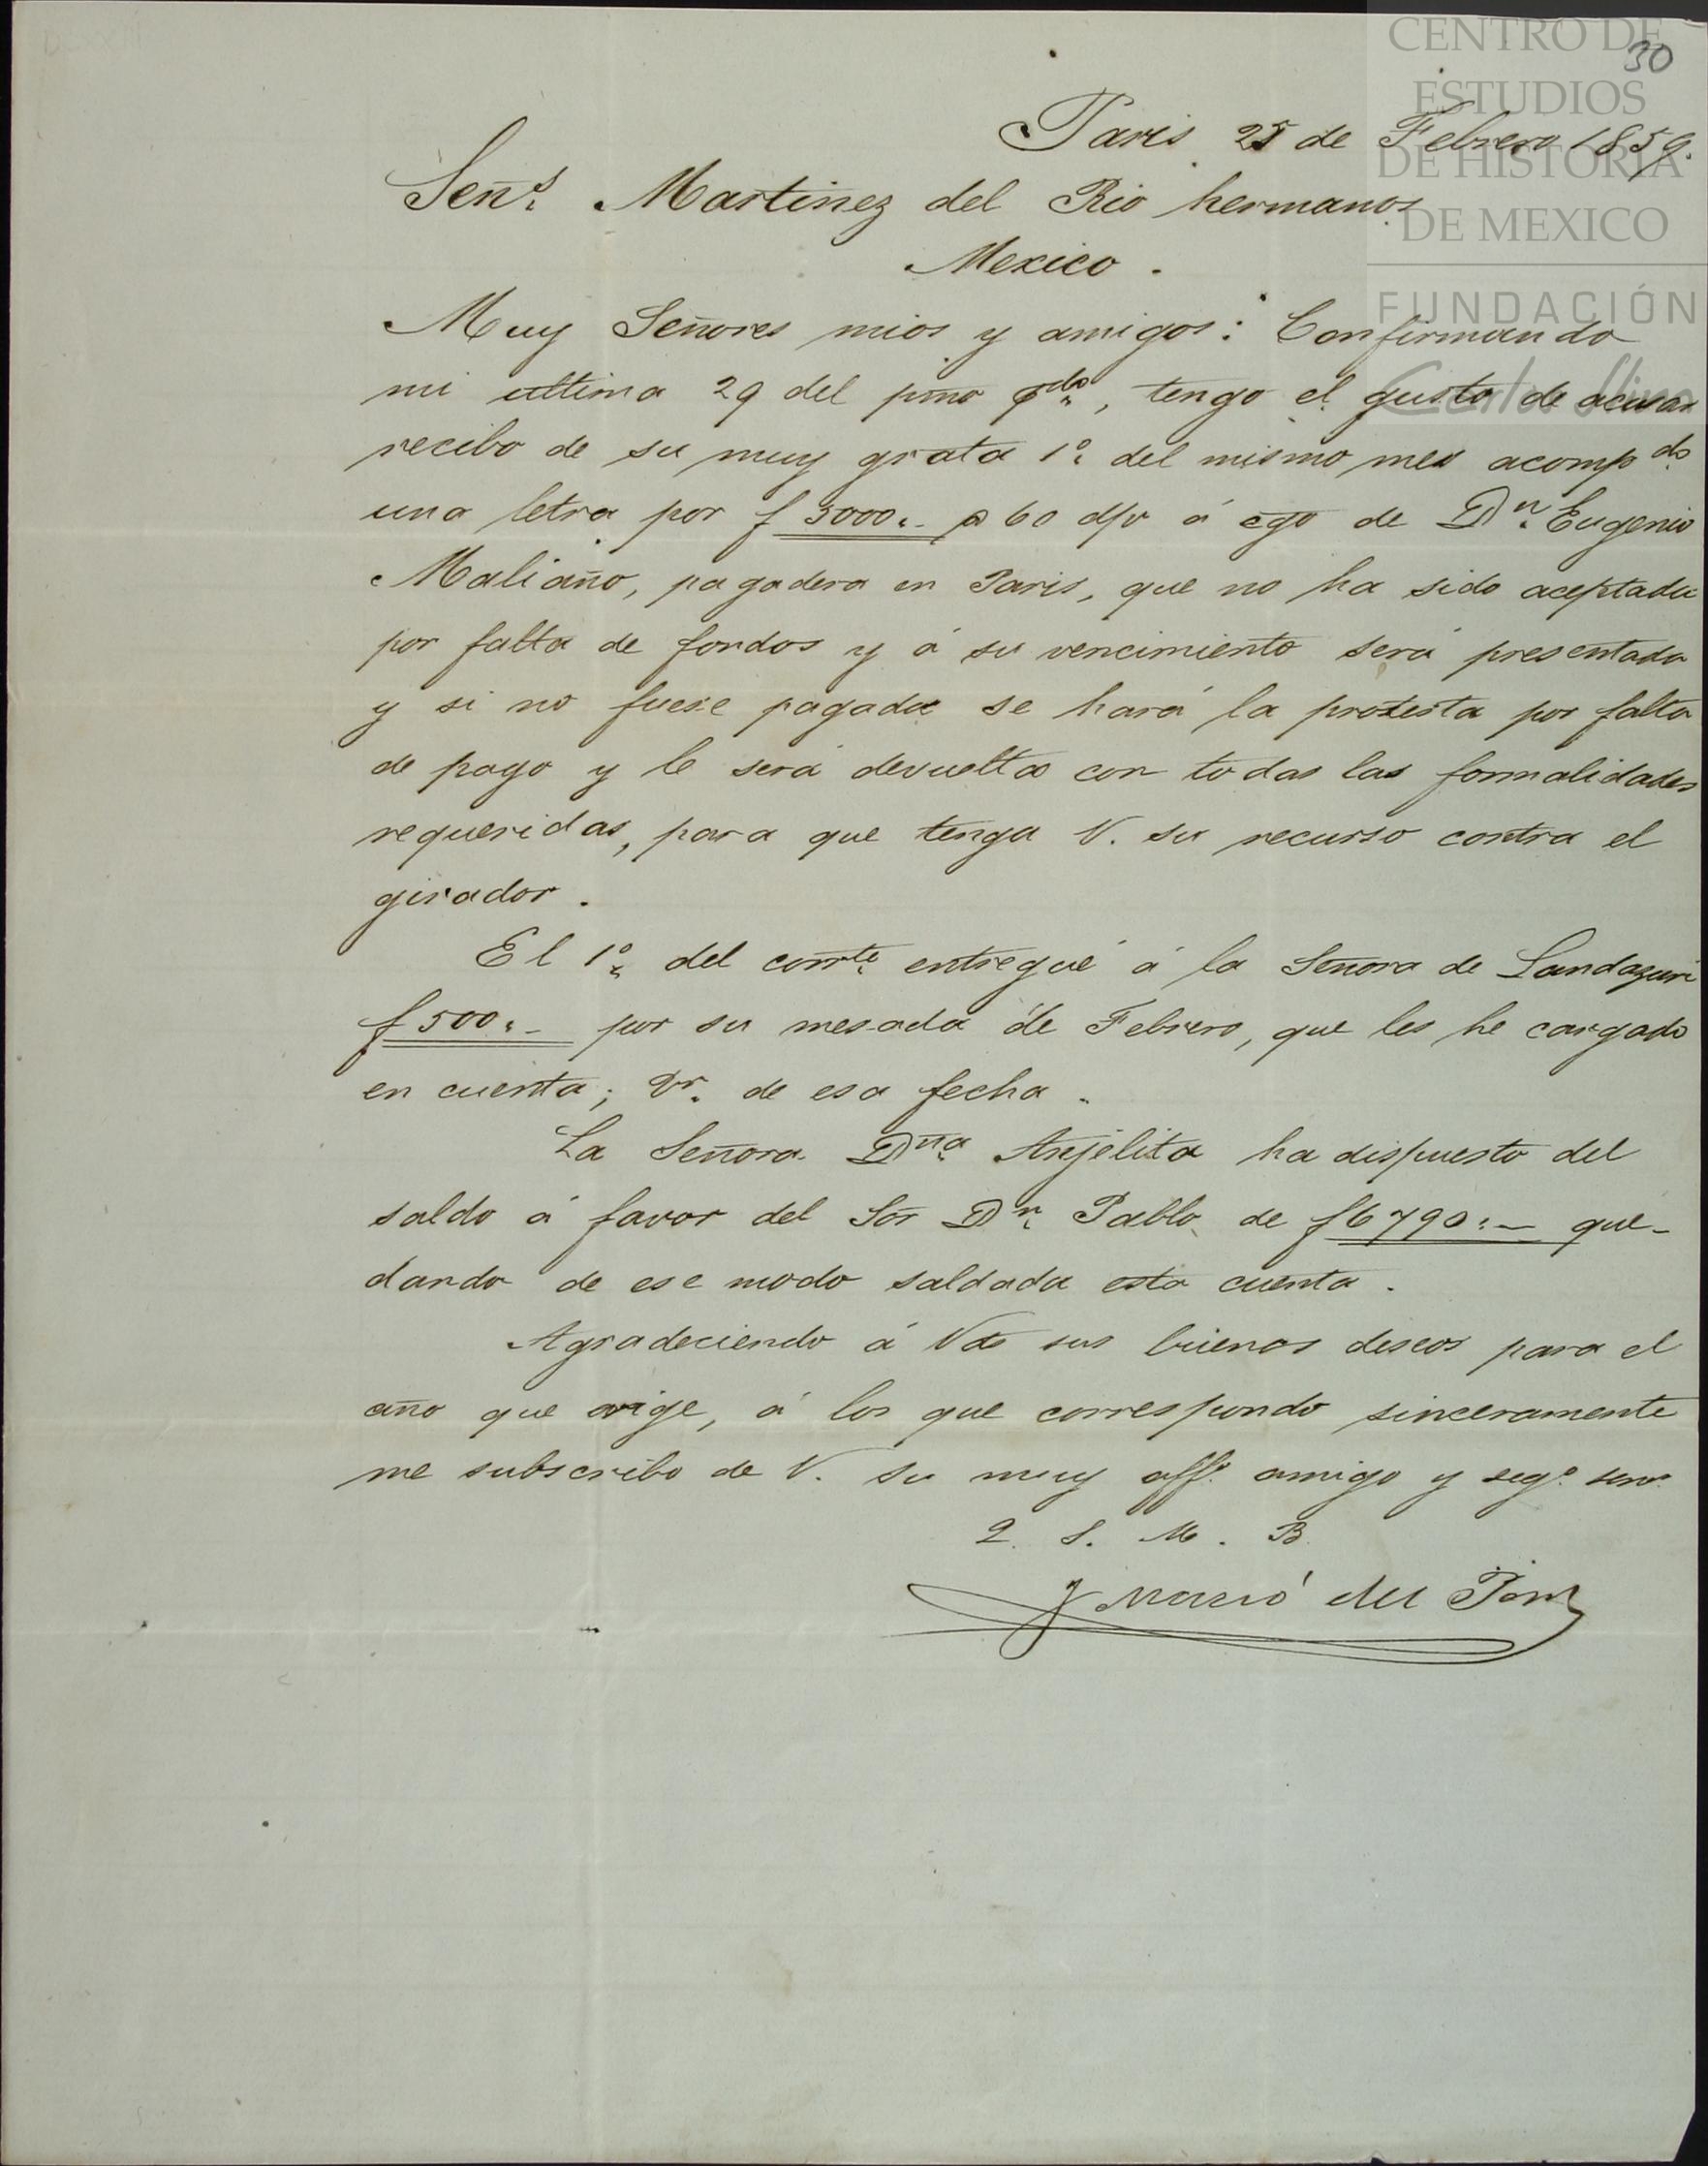 CENTRO DE
30
ESTUDIOS
DE HISTORIA
DE MEXICO
FUNDACIÓN
Carlos Slim
Paris 25 de Febrero 1859.
Señ.s Martinez del Rio hermanos
Mexico.
Muy Señores mios y amigos: Confirmando
mi ultima 29 del pmo pdo, tengo el gusto de acusar
recibo de su muy grata 1º del mismo mes acompdo
una letra por f 3000.- a 60 d/v á cgo de Dn Eugenio
Maliaño, pagadera en Paris, que no ha sido aceptada
por falta de fondos y á su vencimiento será presentada
y si no fuese pagada se hará la protesta por falta
de pago y le será devuelta con todas las formalidades
requeridas, para que tenga V. su recurso contra el
girador.
El 1º del corrte entregué á la Señora de Landazuri
f 500.- por su mesada de Febrero, que les he cargado
en cuenta; Vr. de esa fecha.
La Señora Dña Anjelita ha dispuesto del
saldo á favor del Sor Dn Pablo de f 6790.- que-
dando de ese modo saldada esta cuenta.
Agradeciendo á Vds sus buenos deseos para el
año que rige, á los que correspondo sinceramente
me subscribo de V. su muy aff. amigo y segº serv.
Q. S. M. B.
del